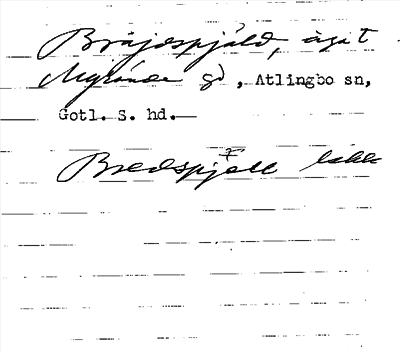 Bräjdspjäld, ägåt
Myrände gd, Atlingbo sn,
Gotl. S. hd.
Bredspjäll